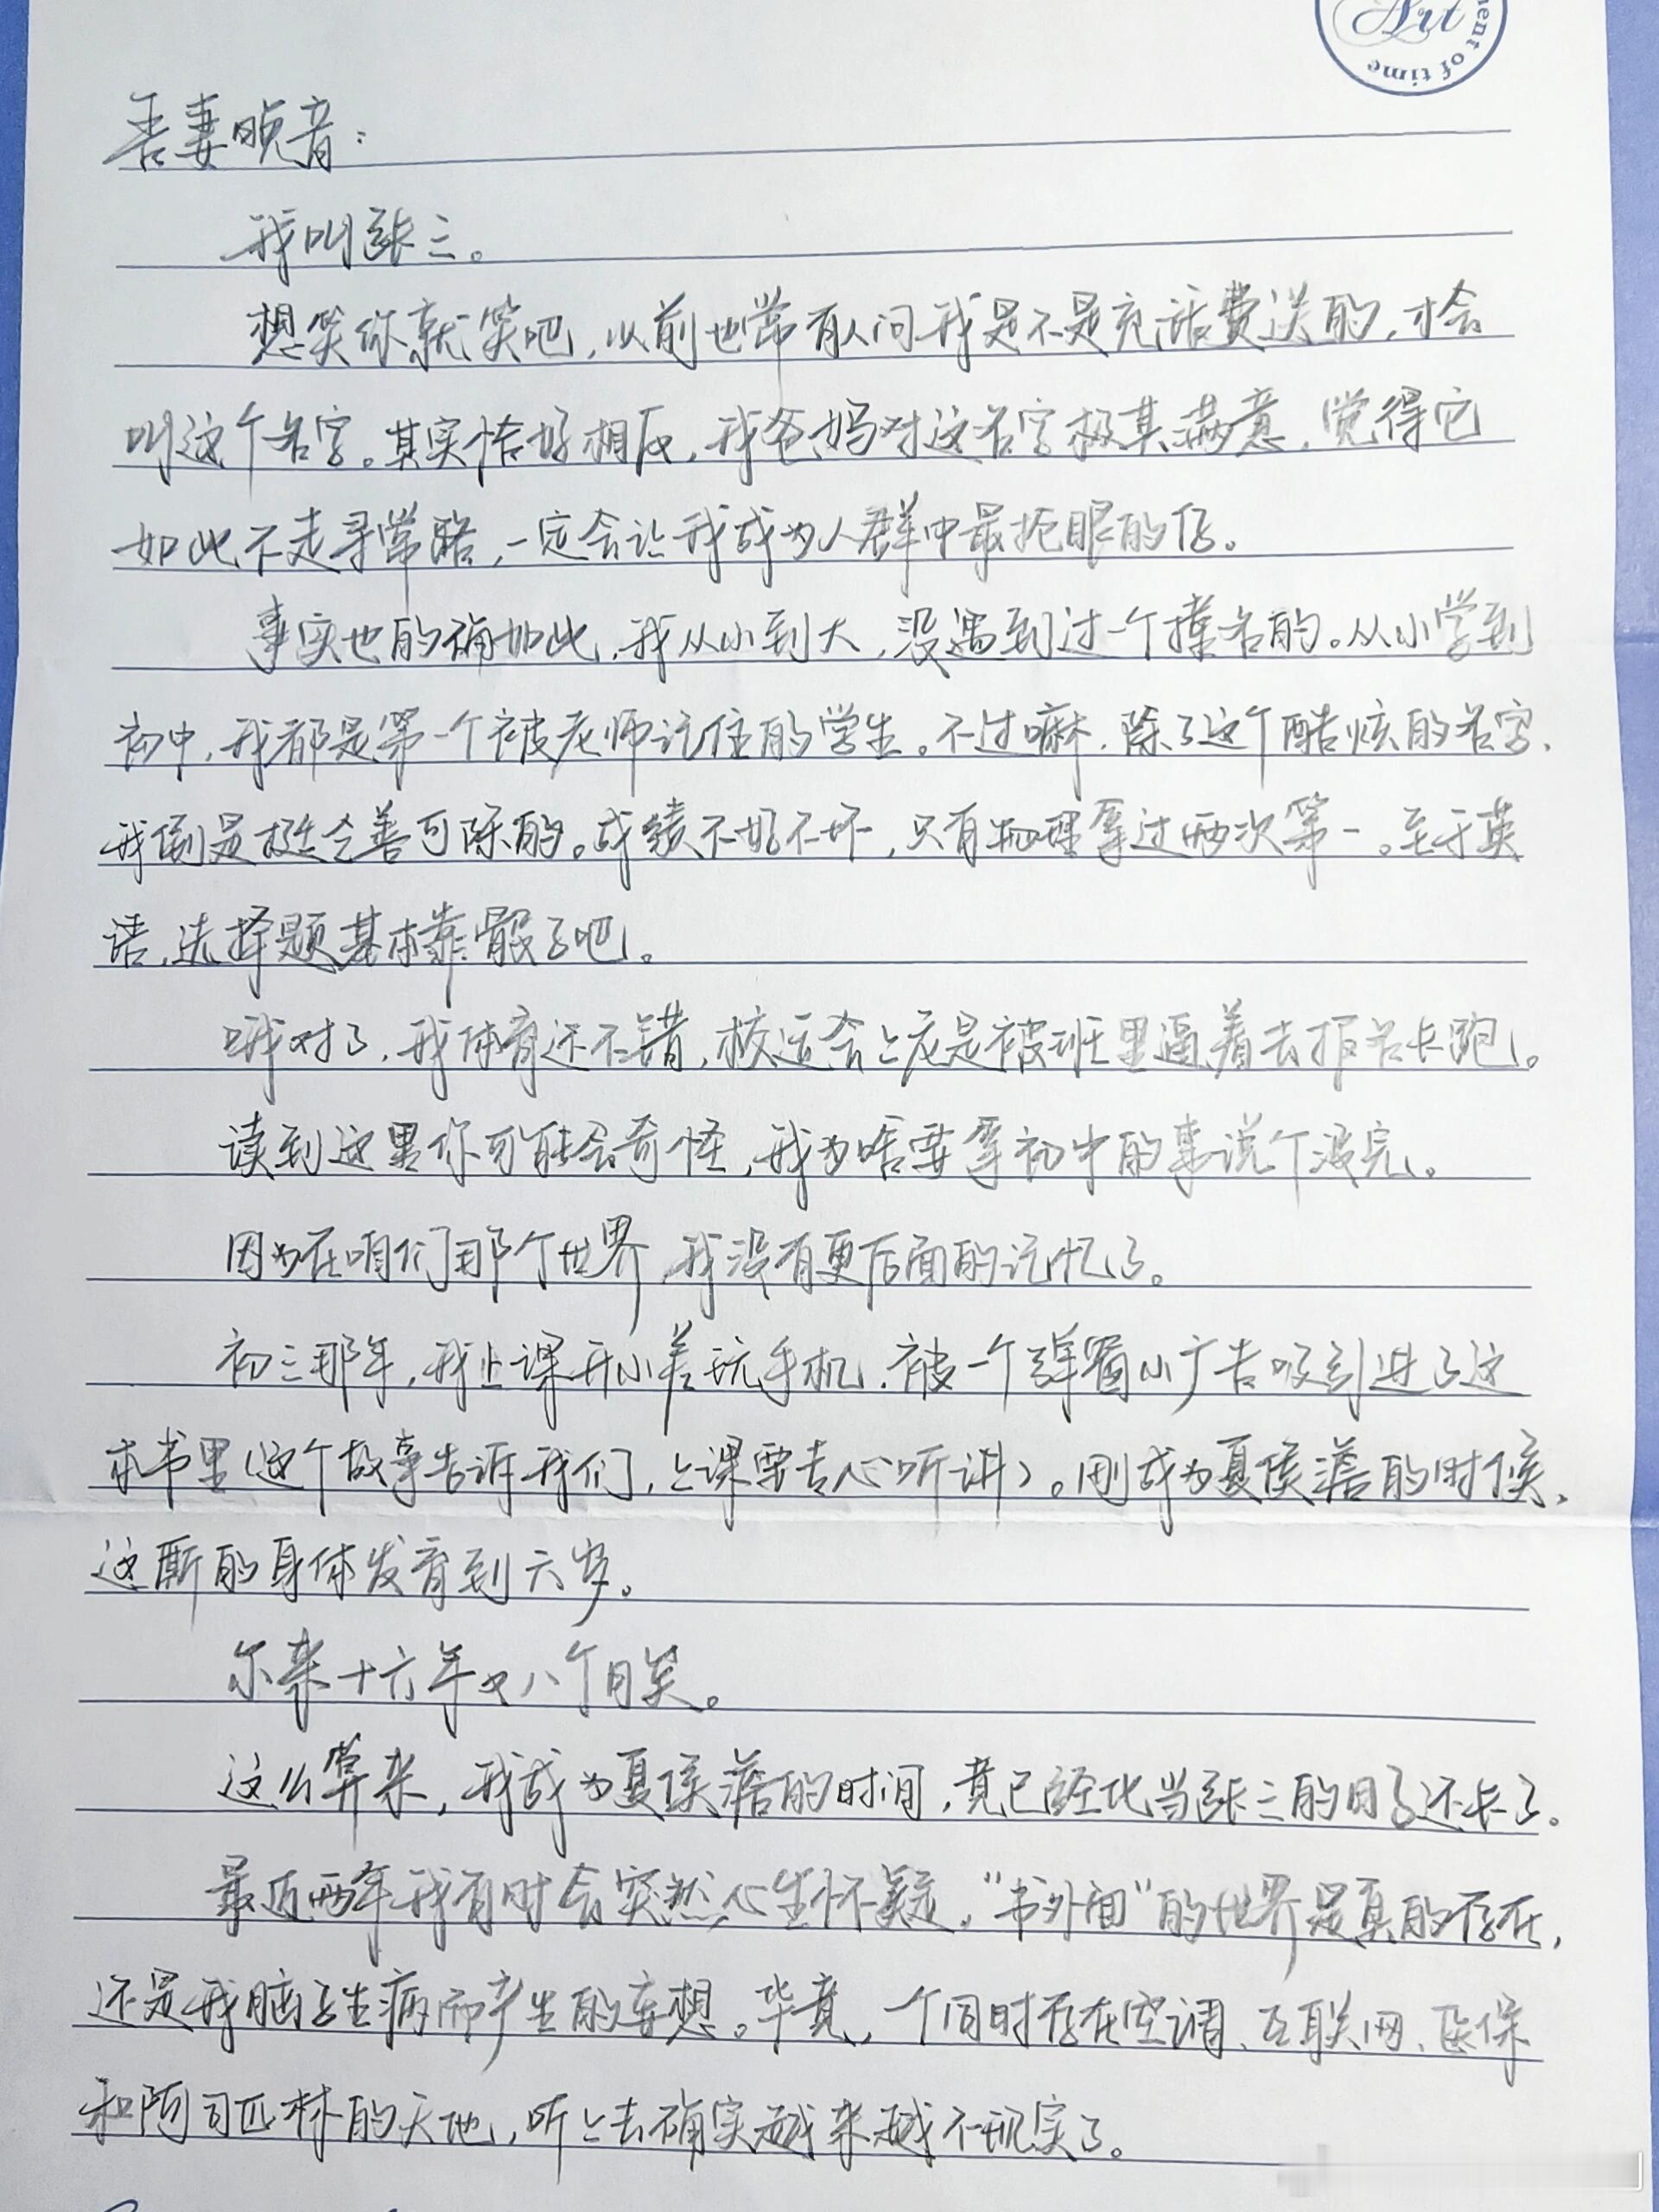 Art
ment of time
吾妻晚音：
我叫张三。
想笑你就笑吧，以前也常有人问我是不是充话费送的，才会
叫这个名字。其实恰好相反，我爸妈对这名字极其满意，觉得它
如此不走寻常路，一定会让我成为人群中最抢眼的仔。
事实也的确如此，我从小到大，没遇到过一个撞名的。从小学到
初中，我都是第一个被老师记住的学生。不过嘛，除了这个酷炫的名字，
我倒是挺乏善可陈的。成绩不好不坏，只有物理拿过两次第一。至于英
语，选择题基本靠骰子吧。
哦对了，我体育还不错，校运会上总是被班里逼着去报名长跑。
读到这里你可能会奇怪，我为啥要拿初中的事说个没完。
因为在咱们那个世界，我没有更后面的记忆了。
初三那年，我上课开小差玩手机，被一个弹窗小广告吸引进了这
本书里（这个故事告诉我们，上课要专心听讲）。刚成为夏侯澹的时候，
这厮的身体发育到六岁。
尔来十六年又八个月矣。
这么算来，我成为夏侯澹的时间，竟已经比当张三的日子还长了。
最近两年我有时会突然心生怀疑，“书外面”的世界是真的存在，
还是我脑子生病而产生的妄想。毕竟，一个同时存在空调、互联网、医保
和阿司匹林的天地，听上去确实越来越不现实了。